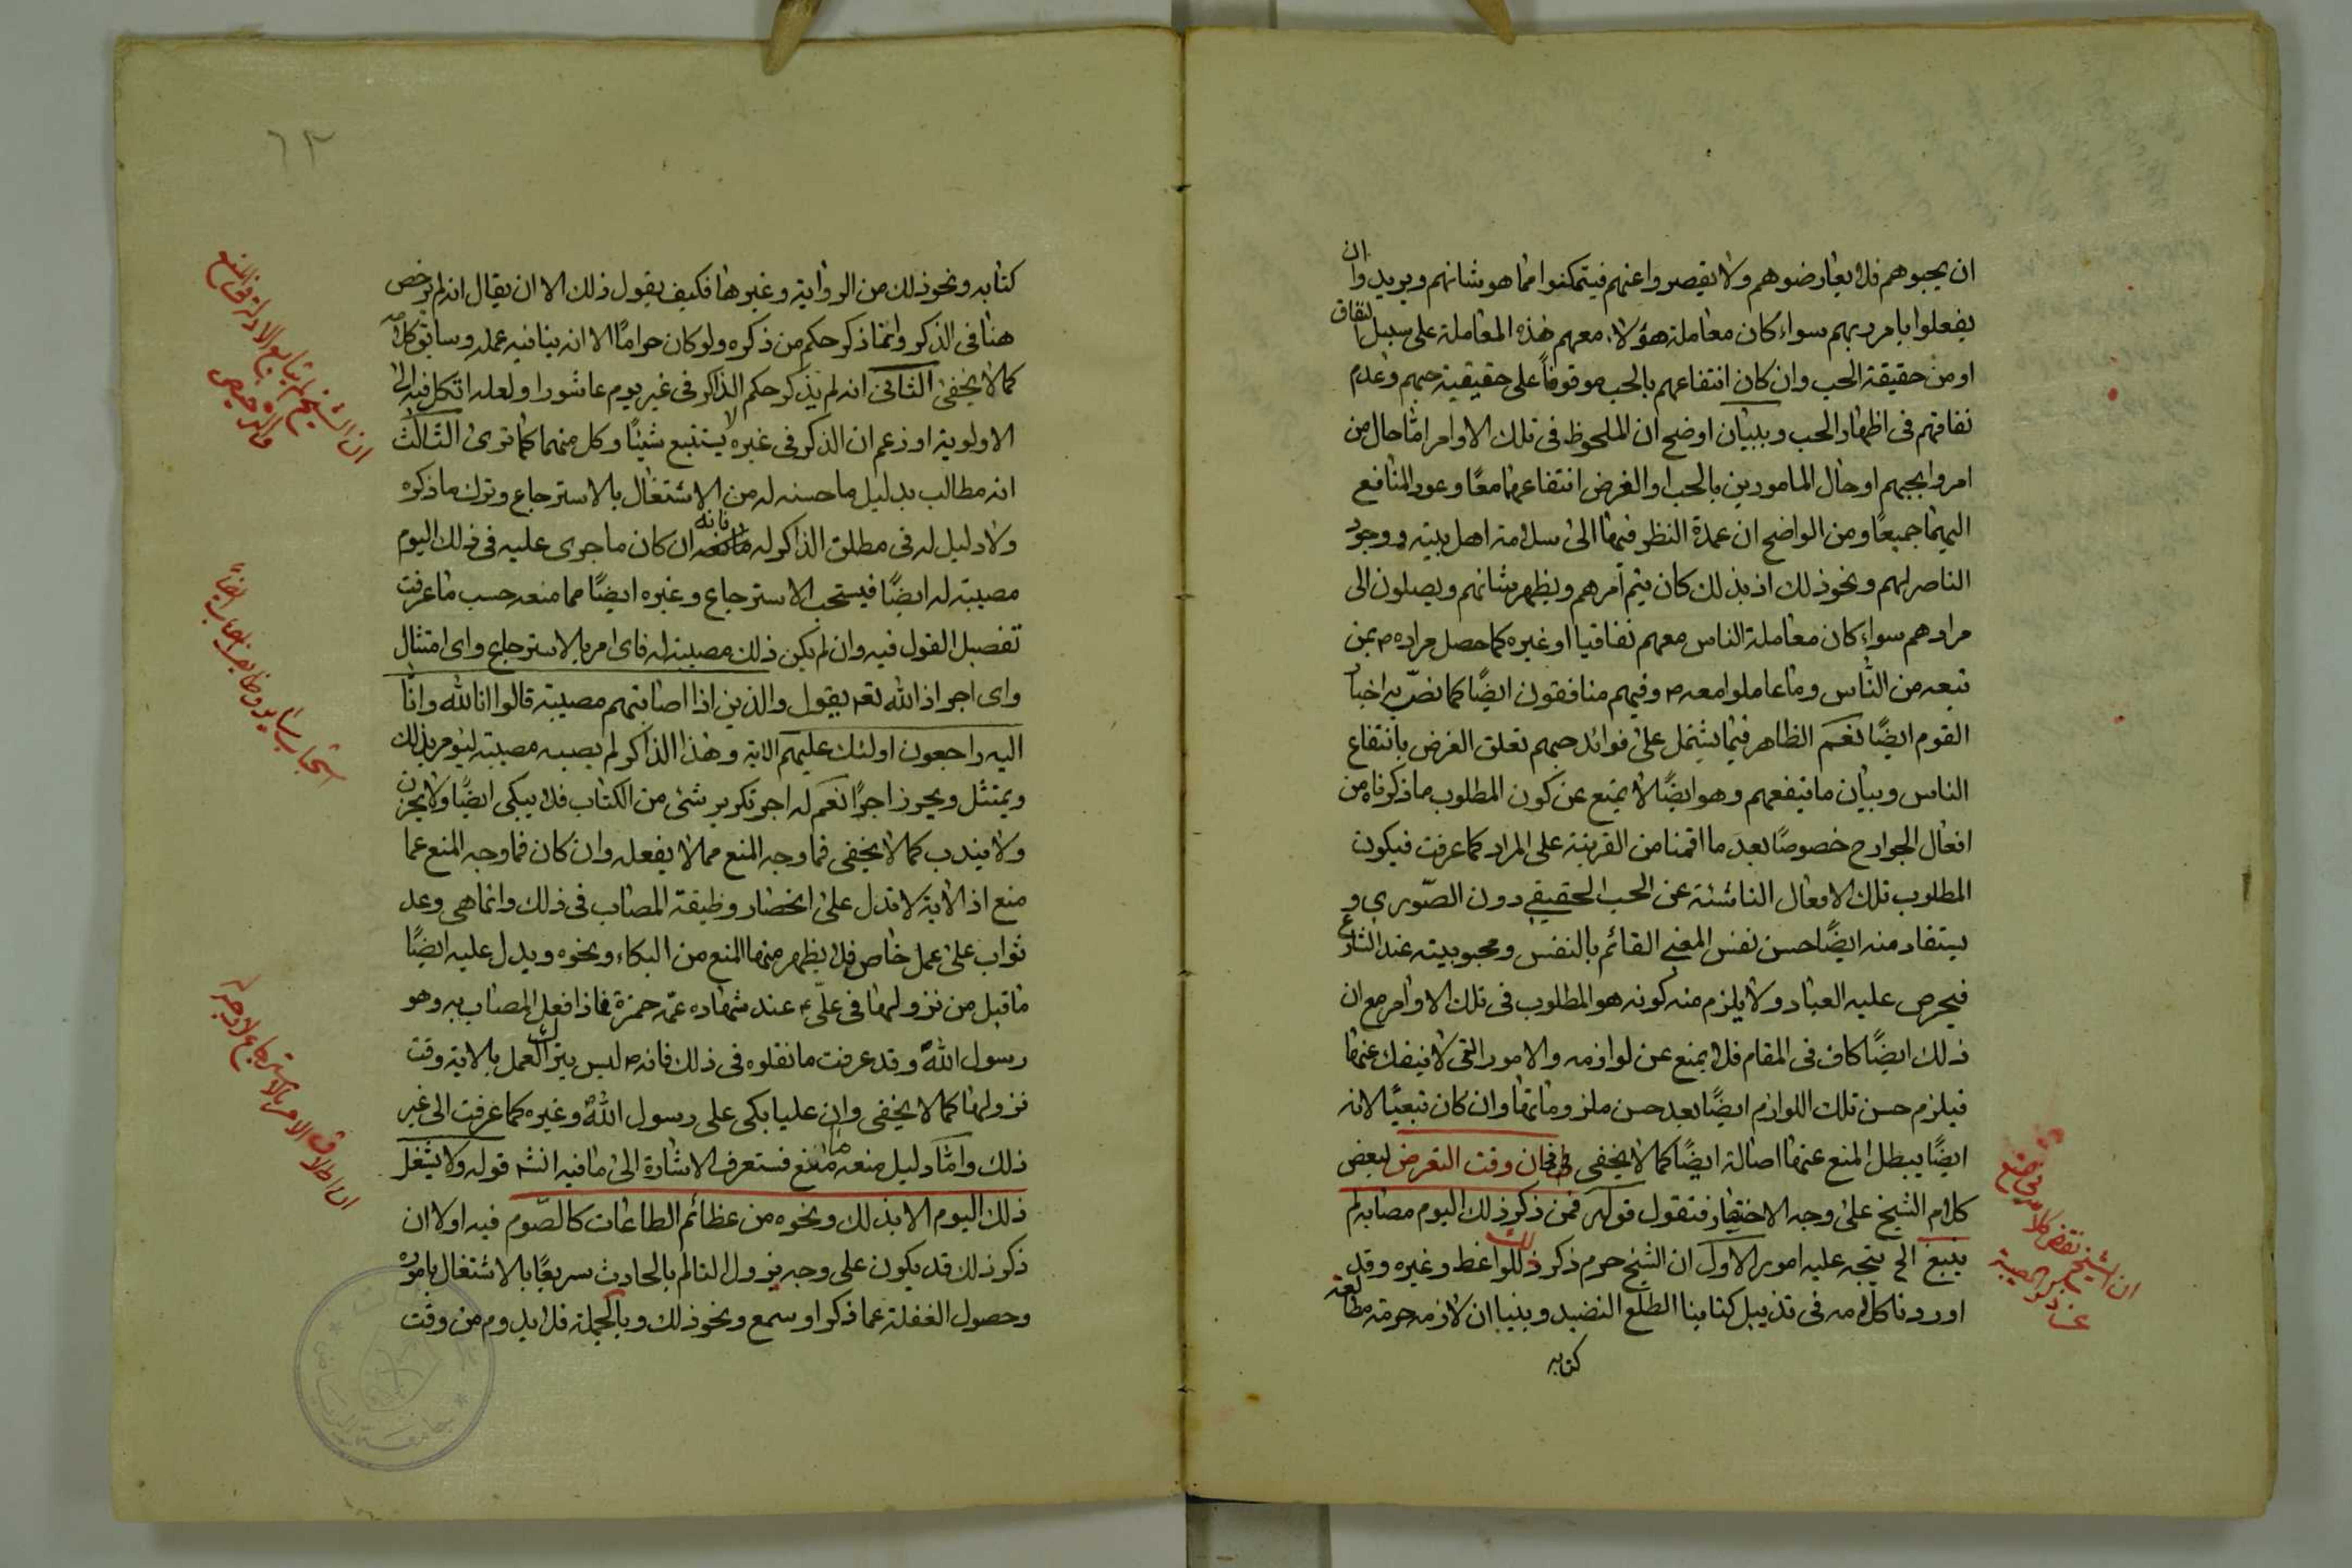 ان يحبوهم فلا يعارضوهم ولا يقصروا عنهم فيتمكنوا مما هو شانهم ويريدوا ان
يفعلوا بامر ربهم سواء كان معاملة هؤلاء معهم هذه المعاملة على سبيل النفاق
او من حقيقة الحب وان كان انتفاعهم بالحب موقوفاً على حقيقية حبهم وعدم
نفاقهم فى اظهار الحب وببيان اوضح ان الملحوظ فى تلك الاوامر اما حال من
امروا بحبهم او حال المامورين بالحب او الغرض انتفاعهما معًا وعود المنافع
اليهما جميعًا ومن الواضح ان عمدة النظر فيها الى سلامة اهل بيته ووجود
الناصر لهم ونحو ذلك اذ بذلك كان يتم امرهم ويظهر شانهم ويصلون الى
مرادهم سواء كان معاملة الناس معهم نفاقيا او غيره كما حصل مراده ص بمن
تبعه من الناس وما عاملوا معه ص وفيهم منافقون ايضًا كما نصّ به اخبار
القوم ايضًا نعم الظاهر فيما يشتمل على فوائد حبهم تعلق الغرض بانتفاع
الناس وبيان ما ينفعهم وهو ايضًا لا يمنع عن كون المطلوب ما ذكرناه من
افعال الجوارح خصوصًا بعد ما اقمنا من القرينة على المراد كما عرفت فيكون
المطلوب تلك الافعال الناشئة عن الحب الحقيقي دون الصّوري و
يستفاد منه ايضًا حسن نفس المعنى القائم بالنفس ومحبوبيته عند الشارع
فيحرص عليه العباد ولا يلزم منه كونه هو المطلوب فى تلك الاوامر مع ان
ذلك ايضًا كاف فى المقام فلا يمنع عن لوازمه والامور التى لا ينفك عنها
فيلزم حسن تلك اللوازم ايضًا بعد حسن ملزوماتها وان كان تبعيًا لانه
ايضًا يبطل المنع عنها اصالة ايضًا كما لا يخفى فحان وقت التعرض لبعض
كلام الشيخ على وجه الاختصار فنقول قوله فمن ذكر ذلك اليوم مصابه لم
ينبغ الخ يتجه عليه امور الاول ان الشيخ حرم ذكر ذلك للواعظ وغيره وقد
اوردنا كلامه فى تذييل كتابنا الطلع النضيد وبنينا ان لازمه حرمة مطالعة
كتابه
ان الشيخ نقض كلامه فى منع
عن ذكر المصيبة
٦٣
كتابه ونحو ذلك من الرواية وغيرها فكيف يقول ذلك الا ان يقال انه لم يرخص
هنا فى الذكر وانما ذكر حكم من ذكره ولو كان حرامًا الا انه ينافيه عمله وسابق كلامه
كما لا يخفى الثانى انه لم يذكر حكم الذاكر فى غير يوم عاشورا ولعله اتكل فيه الى
الاولوية او زعم ان الذكر فى غيره لا يستتبع شيئًا وكل منهما كما ترى الثالث
انه مطالب بدليل ما حسنه له من الاشتغال بالاسترجاع وترك ما ذكره
ولا دليل له فى مطلق الذاكر له فانه ان كان ما جرى عليه فى ذلك اليوم
مصيبة له ايضًا فيستحب الاسترجاع وغيره ايضًا مما منعه حسب ما عرفت
تفصيل القول فيه وان لم يكن ذلك مصيبة له فاى امر بالاسترجاع واى امتثال
واى اجر اذ الله تعم يقول والذين اذا اصابتهم مصيبة قالوا انا لله وانّا
اليه راجعون اولئك عليهم الاية وهذا الذاكر لم يصبه مصيبة ليؤمر بذلك
ويمتثل ويحرز اجرًا نعم له اجر تكرير شئ من الكتاب فلا يبكى ايضًا ولا يحزن
ولا يندب كما لا يخفى فما وجه المنع مما لا يفعله وان كان فما وجه المنع عما
منع اذ الاية لا تدل على انحصار وظيفة المصاب فى ذلك وانما هى وعد
ثواب على عمل خاص فلا يظهر منها المنع من البكاء ونحوه ويدل عليه ايضًا
ما قيل من نزولها فى علىّ ع عند شهاده عمّه حمزة فماذا فعل المصاب به وهو
رسول الله ص وقد عرفت ما نقلوه فى ذلك فانه ص ليس يترك العمل بالاية وقت
نزولها كما لا يخفى وان عليا بكى على رسول الله ص وغيره كما عرفت الى غير
ذلك واما دليل منعه ما منع فستعرف الاشارة الى ما فيه انشه قوله ولا يشغل
ذلك اليوم الا بذلك ونحوه من عظائم الطاعات كالصّوم فيه اولا ان
ذكر ذلك قد يكون على وجه يزول التالم بالحادث سريعًا بالاشتغال باموره
وحصول الغفلة عما ذكر او سمع ونحو ذلك وبالجملة فلا يدوم من وقت
ان اطلاق الامر بالاسترجاع لا وجه له
جامعة الرياض